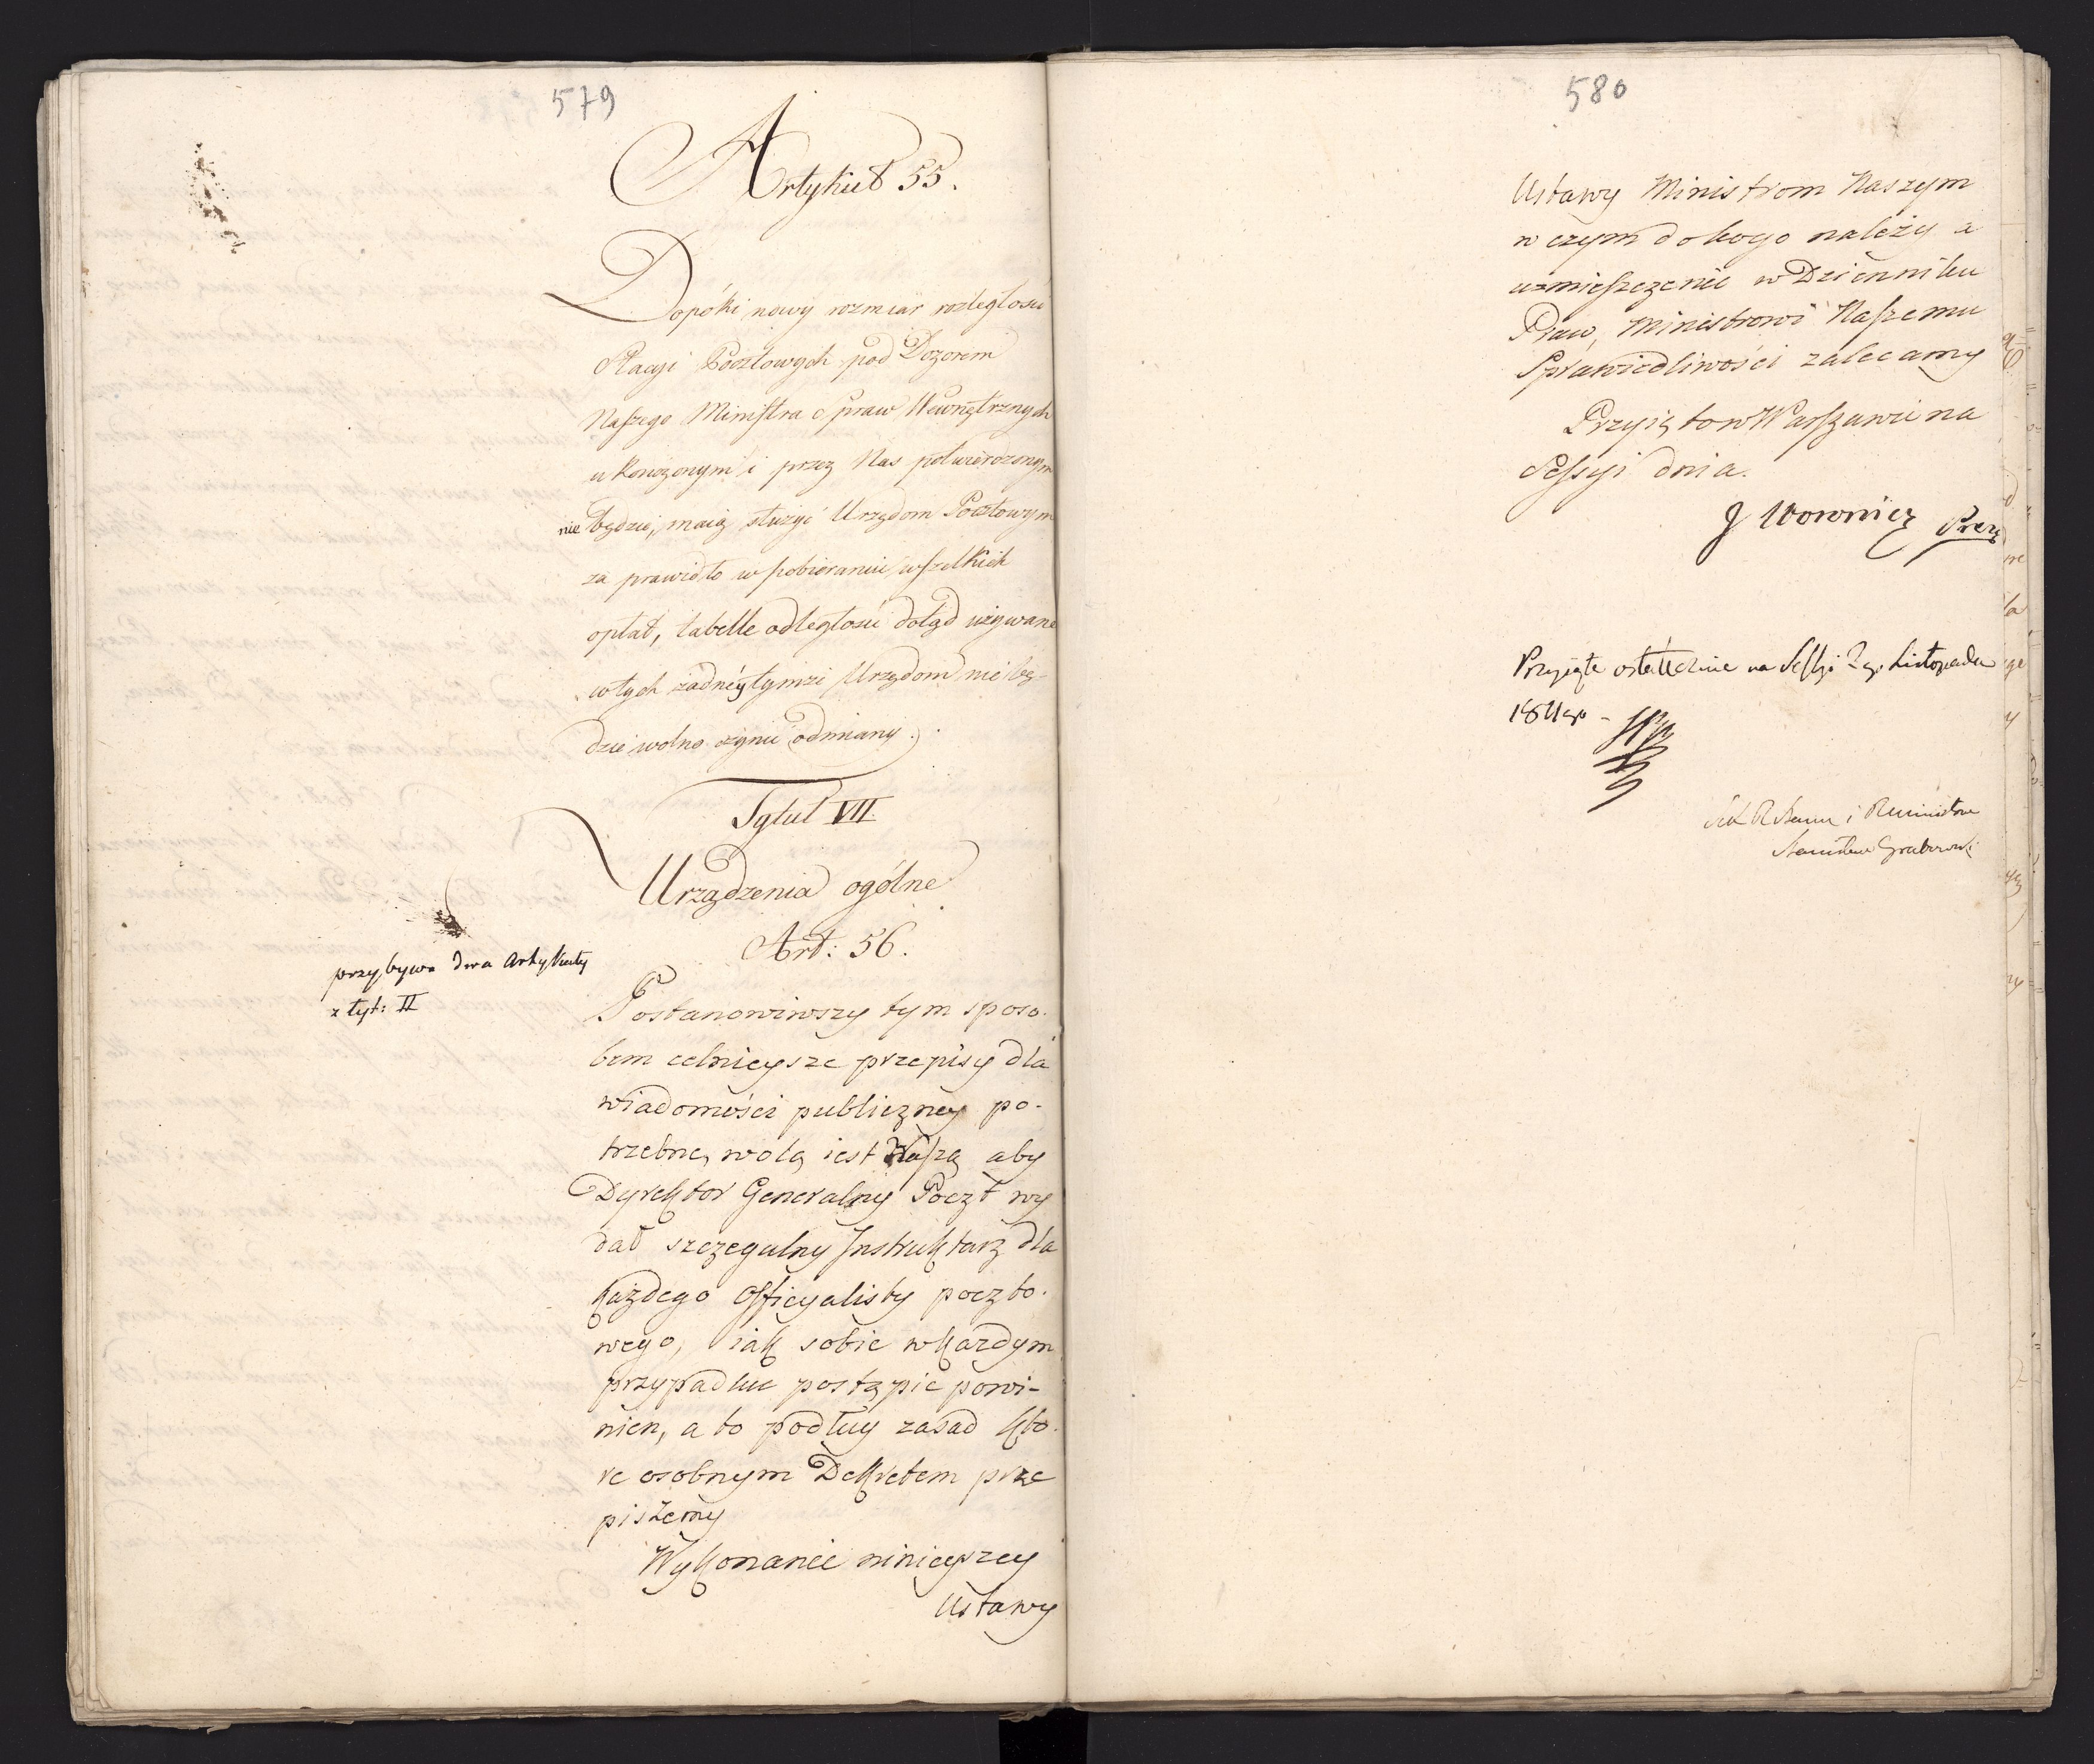 579
Artykuł 55.
Dopóki nowy rozmiar rozległości
Stacyi Pocztowych pod Dozorem
Naszego Ministra spraw Wewnętrznych
ukończonym i przez Nas potwierdzonym
nie będzie, maią służyć Urzędom Pocztowym
za prawidło w pobieraniu wszelkich
opłat, tabelle odległości dotąd używane
w tych żadney tymże Urzędom nie bę-
dzie wolno czynić odmiany.
Tytuł VII.
Urządzenia ogólne
Art: 56.
przybywa dwa Artykuły
z tyt: II
Postanowiwszy tym sposo-
bem celnieysze przepisy dla
wiadomości publiczney po-
trzebne, wolą iest Naszą aby
Dyrektor Generalny Poczt wy
dał szczegulny Instruktarz dla
każdego Officyalisty poczto-
wego, iak sobie w każdym
przypadku postąpić powi-
nien, a to podług zasad któ-
re osobnym Dekretem prze
piszemy
Wykonanie ninieyszey
Ustawy
580
Ustawy Ministrom Naszym
w czym do kogo należy a
umieszczenie w Dzienniku
Praw, Ministrowi Naszemu
Sprawiedliwości zalecamy
Przyięto w Warszawie na
Sessyi dnia.
J Woronicz Prez
Przyięte ostatecznie na Sessyi 29. Listopada
1811 go -
Sek R Stanu i R Ministrów
Stanisław Grabowski